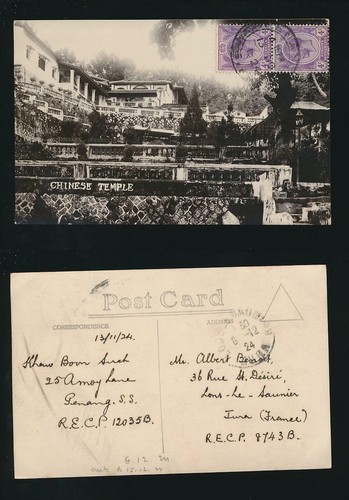 CHINESE TEMPLE
Post Card
CORRESPONDENCE
ADDRESS
13/11/24.
Khaw Boon
25 Amoy Lane
Penang. S.S.
R.E.C.P. 12035B.
Mr. Albert Benoit,
36 Rue St. Désiré,
Lons-le-Saunier
Jura (France)
R.E.C.P. 8743B.
30
6-12
24
JURA
6.12.24